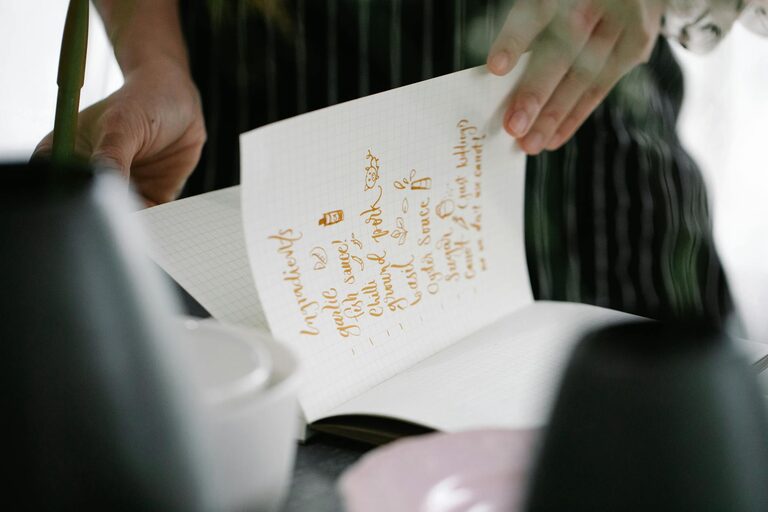 Ingredients
- garlic
- fish sauce!
- Chilli
- ground pork
- basil
- Oyster Sauce
- Sugar
- Carrot (just kidding
no we don't use carrot!